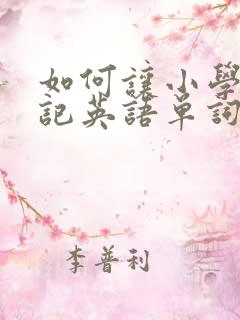 如何讓小學
記英語單詞
李普利